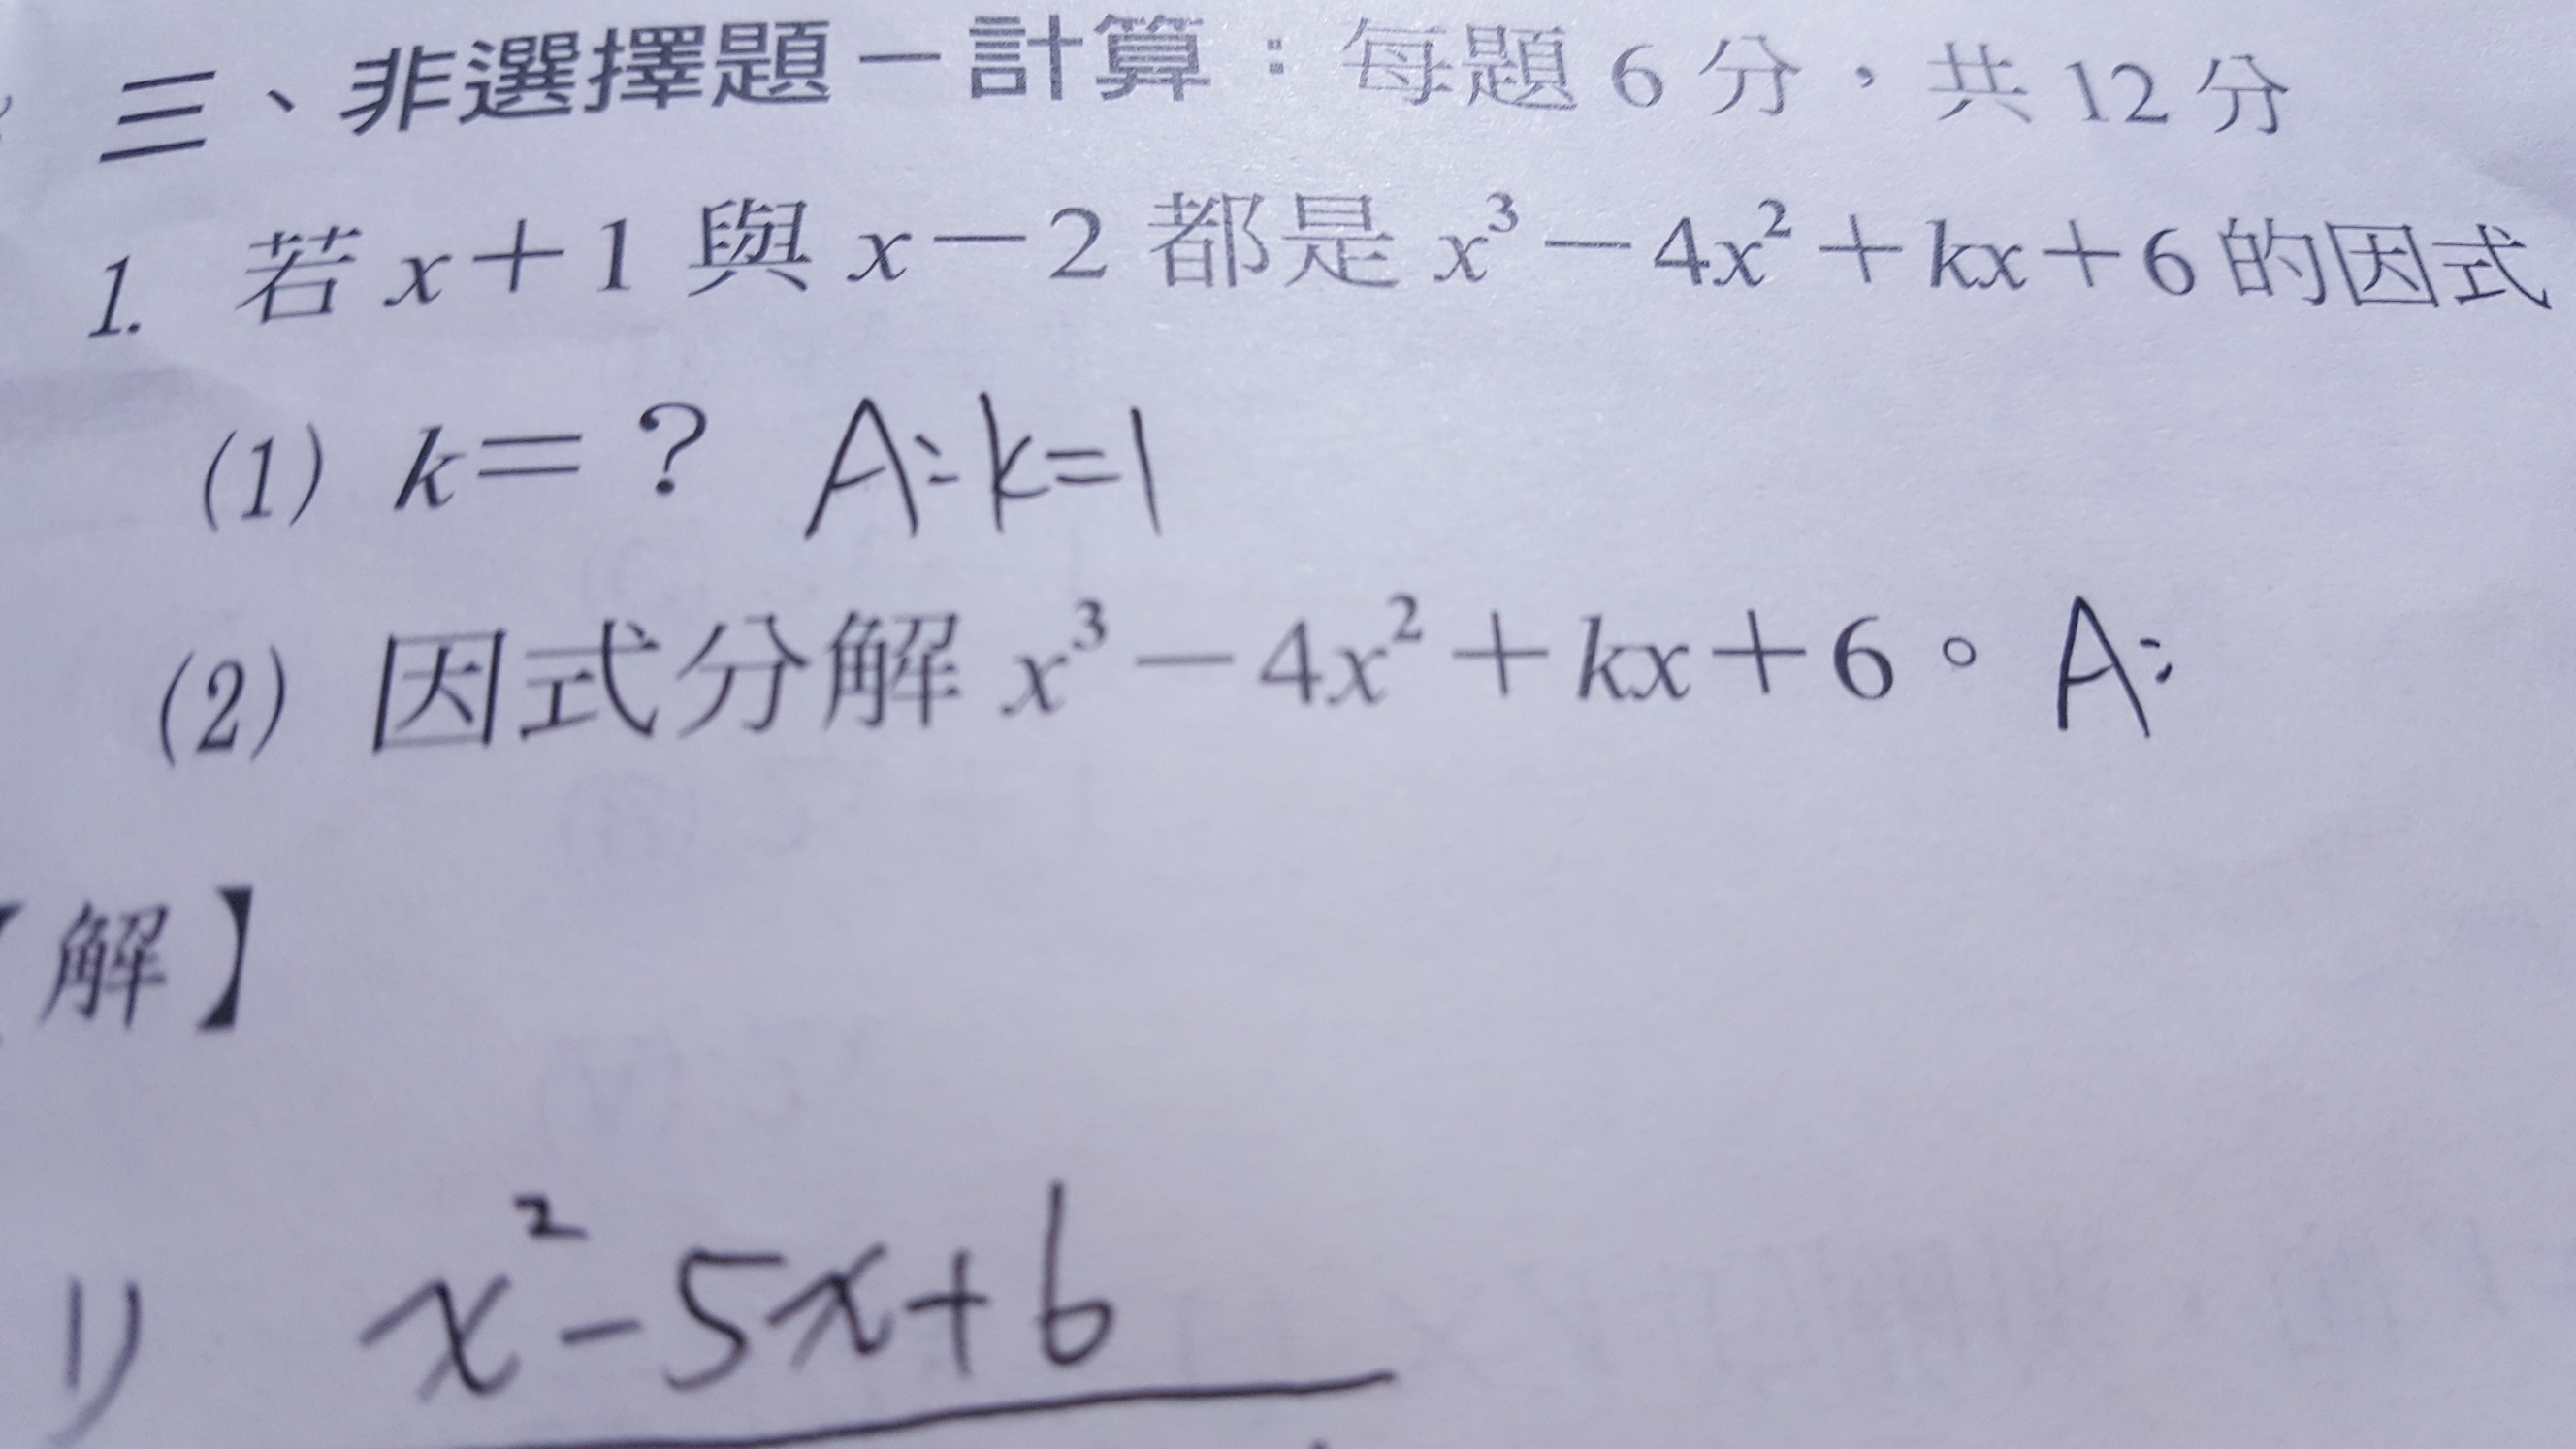 三、非選擇題－計算：每題 6 分，共 12 分
1. 若 x＋1 與 x－2 都是 x³－4x²＋kx＋6 的因式
(1) k＝？ A: k=1
(2) 因式分解 x³－4x²＋kx＋6。 A:
【解】
1) x²-5x+6